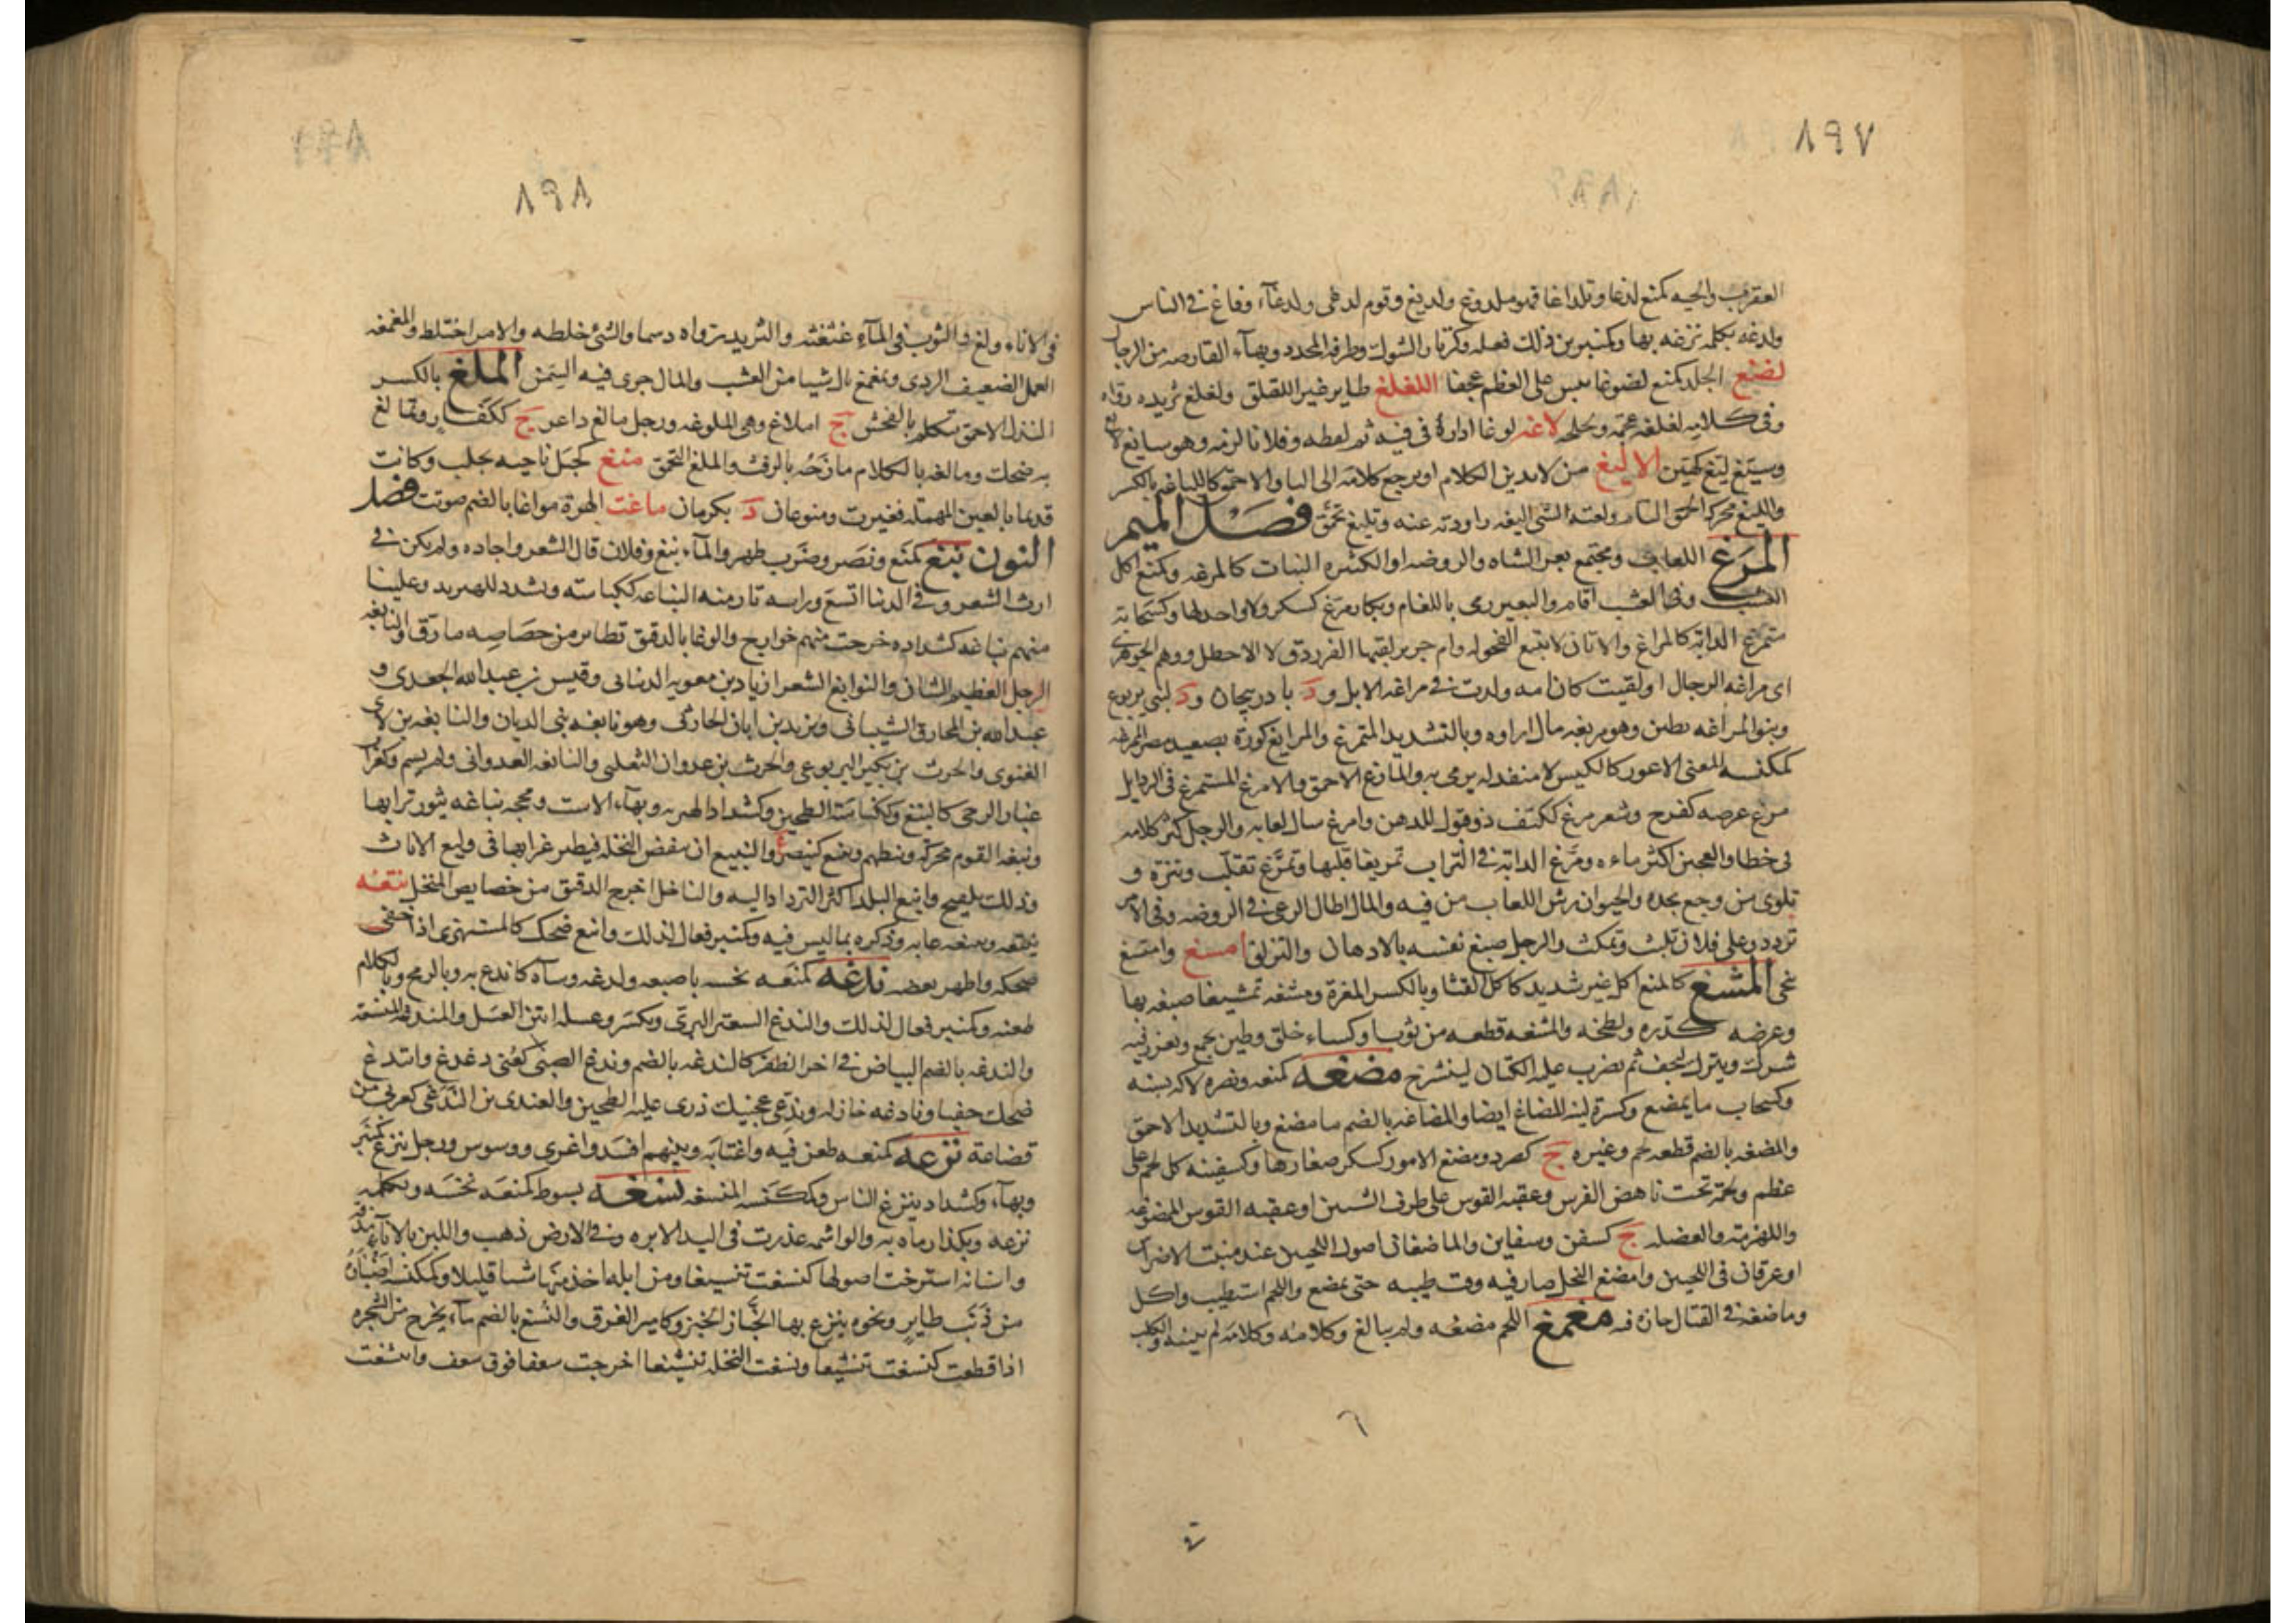 ٨٩٧
العقرب والحيه كمنع لدغا وتلداغا فهو ملدوغ ولديغ وقوم لدغى ولدغآء وفاغ فى الناس
ولدغه بكلمه نزغه بها وكمنبر من ذلك فعله وكزنار الشوك وطرفه المحدد وبهآء القارصه من الرجال
لضغ الجلد كمنع لضوغا يبس على العظم عجفا اللغلغ طاير غير اللقلق ولغلغ ثريده رواه
وفى كلامه لغلغه عجمه لاغه لوغا اداره فى فيه ثم لفظه وفلانا لزمه وهو سايغ لايغ
وسيغ ليغ كهين الاليغ من لا يبين الكلام او يرجع كلامه الى اليا والاحمق كاللياغه بالكسر
والليغ محركه الحمق التام ولغته الشى اليغه راودته عنه وتليغ تحمق فصل الميم
المرغ اللعاب ومجتمع بعر الشاه والروضه او الكثيره النبات كالمرغه وكمنع اكل
العشب وفى العشب اقام والبعير رمى باللغام وبكار مرغ كسكر ولا واحد لها وكسحابه
متمرغ الدابه كالمراغ والاتان لا تمنع الفحوله وام جرير لقبها الفرزدق لا الاخطل ووهم الجوهرى
اى مراغه الرجال او لقيت كان امه ولدت فى مراغه الابل ود باذربيجان ود لبنى يربوع
وبنو المراغه بطن وهو مريغه مال ازاوه وبالتشديد المتمرغ والمرايغ كورة بصعيد مصر
كمكنسه المعى الاعور كالكيس لا منفذ له يرمى به والمارغ الاحمق والامرغ المتمرغ فى الرذايل
مرغ عرضه كفرح وشعر مرغ ككتف ذو قبول للدهن وامرغ سال لعابه والرجل كثر كلامه
فى خطا والعجين اكثر ماءه ومرغ الدابه فى التراب تمريغا قلبها وتمرغ تقلب وتنزه و
تلوى من وجع يجده والحيوان رش اللعاب من فيه والمال اطال الرعى فى الروضه وفى الامر
تردد وعلى فلان تلبث وتمكث والرجل صبغ نفسه بالادهان والتزلق امسغ وامتسغ
نحى المشغ كالمنع اكل غير شديد كاكل القثا وبالكسر المغرة ومشغه تمشيغا صبغه بها
وعرضه كدره ولطخه والمشغه قطعه من ثوب او كساء خلق وطين يجمع ويغرز فيه
شوك ويترك ليجف ثم يضرب عليه الكتان ليتسرح مضغه كمنعه ونصره لاكه بسنه
وكسحاب ما يمضغ وكسرة لينه المضاغ ايضا والمضاغه بالضم ما مضغ وبالتشديد الاحمق
والمضغه بالضم قطعه لحم وغيره ج كصرد ومضغ الامور كسكر صغارها وكسفينه كل لحم على
عظم ولحمة تحت ناهض الفرس وعقبه القوس على طرف السيتين او عقبه القوس الممضوغه
واللهزمه والعضله ج كسفن وسفاين والماضغان اصول اللحيين عند منبت الاضراس
او عرقان فى اللحيين وامضغ النخل صار فيه وقت طيبه حتى يمضغ واللحم استطيب واكل
وماضغه فى القتال جاده فيه مغمغ اللحم مضغه ولم يبالغ وكلامه لم يبينه والكلب
٨٩٨
فى الاناء ولغ والثوب فى المآء غثغثه والثريد رواه دسما والشئ خلطه والامر اختلط والمغمغه
العمل الضعيف الردى وتمغمغ نال شيا من العشب والمال جرى فيه السمن الملغ بالكسر
النذل الاحمق تتكلم بالفحش ج املاغ وهى الملوغه ورجل مالغ داعر ج ككفار وتمالغ
به ضحك ومالغه بالكلام مازحه بالرفث والملغ التحمق منغ كجبل ناحيه بحلب وكانت
قديما بالعين المهمله فغيرت ومنوغان د بكرمان ماغت الهرة مواغا بالضم صوتت فصل
النون نبغ كمنع ونصر وضرب ظهر والمآء نبغ وفلان قال الشعر واجاده ولم يكن فى
ارث الشعر وفى الدنيا اتسع وراسه ثار منه النباغه ككناسه وتشدد للهبريه وعلينا
منهم نباغه كشداده خرجت منهم خوارج والوغا بالدقيق تطاير من خصاصه ما رق والنابغه
الرجل العظيم الشان والنوابغ الشعرا زياد بن معويه الذبيانى وقيس بن عبد الله الجعدى و
عبد الله بن المخارق الشيبانى ويزيد بن ابان الحارثى وهو نابغه بنى الديان والنابغه بن لاى
الغنوى والحرث بن بكر اليربوعى والحرث بن عدوان التغلبى والنابغه العدوانى ولم يسم وكغراب
غبار الرحى كالنبغ وككناسة الطحين وكشداد الهبريه وبهآء الاست ومحجه نباغه يثور ترابها
ونبغه القوم محركه وسطهم وتنبغ والتنبيغ ان تنفض النخله فيطير غبارها فى وليع الاناث
وذلك تلقيح وانبغ البلد اكثر الترداد اليه والناخل اخرج الدقيق من خصايص المنخل نتغه
ينتغه وينتغه عابه وذكره بما ليس فيه وكمنبر فعال لذلك وانتغ ضحك كالمستهزى اذا خفى
ضحكه واظهر بعضه ندغه كمنعه نخسه باصبعه ولدغه وساه كاندغ به وبالرمح وبالكلام
طعنه وكمنبر فعال لذلك والندغ السعتر البرى ويكسر وعسله امتن العسل والمندغه المنسغه
والندغه بالضم البياض فى اخر الظفر كالندغه بالضم وندغ الصبى كعنى دغدغ وانتدغ
ضحك خفيا ونادغه غازله وندغى عجينك ذرى عليه الطحين والعندى بن الندغى كعربى من
قضاعة نزغه كمنعه طعن فيه واغتابه وبينهم افسد واغرى ووسوس ورجل منزغ كمنبر
وبهآء وكشداد ينزغ الناس وكمكنسه المنسغه نسغه بسوط كمنعه نخسه وبكلمه
نزغه وبكذا رماه به والواشمه غذرت فى اليد الابره وفى الارض ذهب واللبن بالمآء مذقه
واسنانه استرخت اصولها كنسغت تنسيغا ومن ابله اخذ منها شيا قليلا وكمكنسه اضبارة
من ذنب طاير ونحوه ينزغ بها الخباز الخبز وكامير العرق والنسغ بالضم مآء يخرج من الشجره
اذا قطعت كنسغت تنسيغا ونسغت النخله تنسيغا اخرجت سعفا فوق سعف وانتسغت